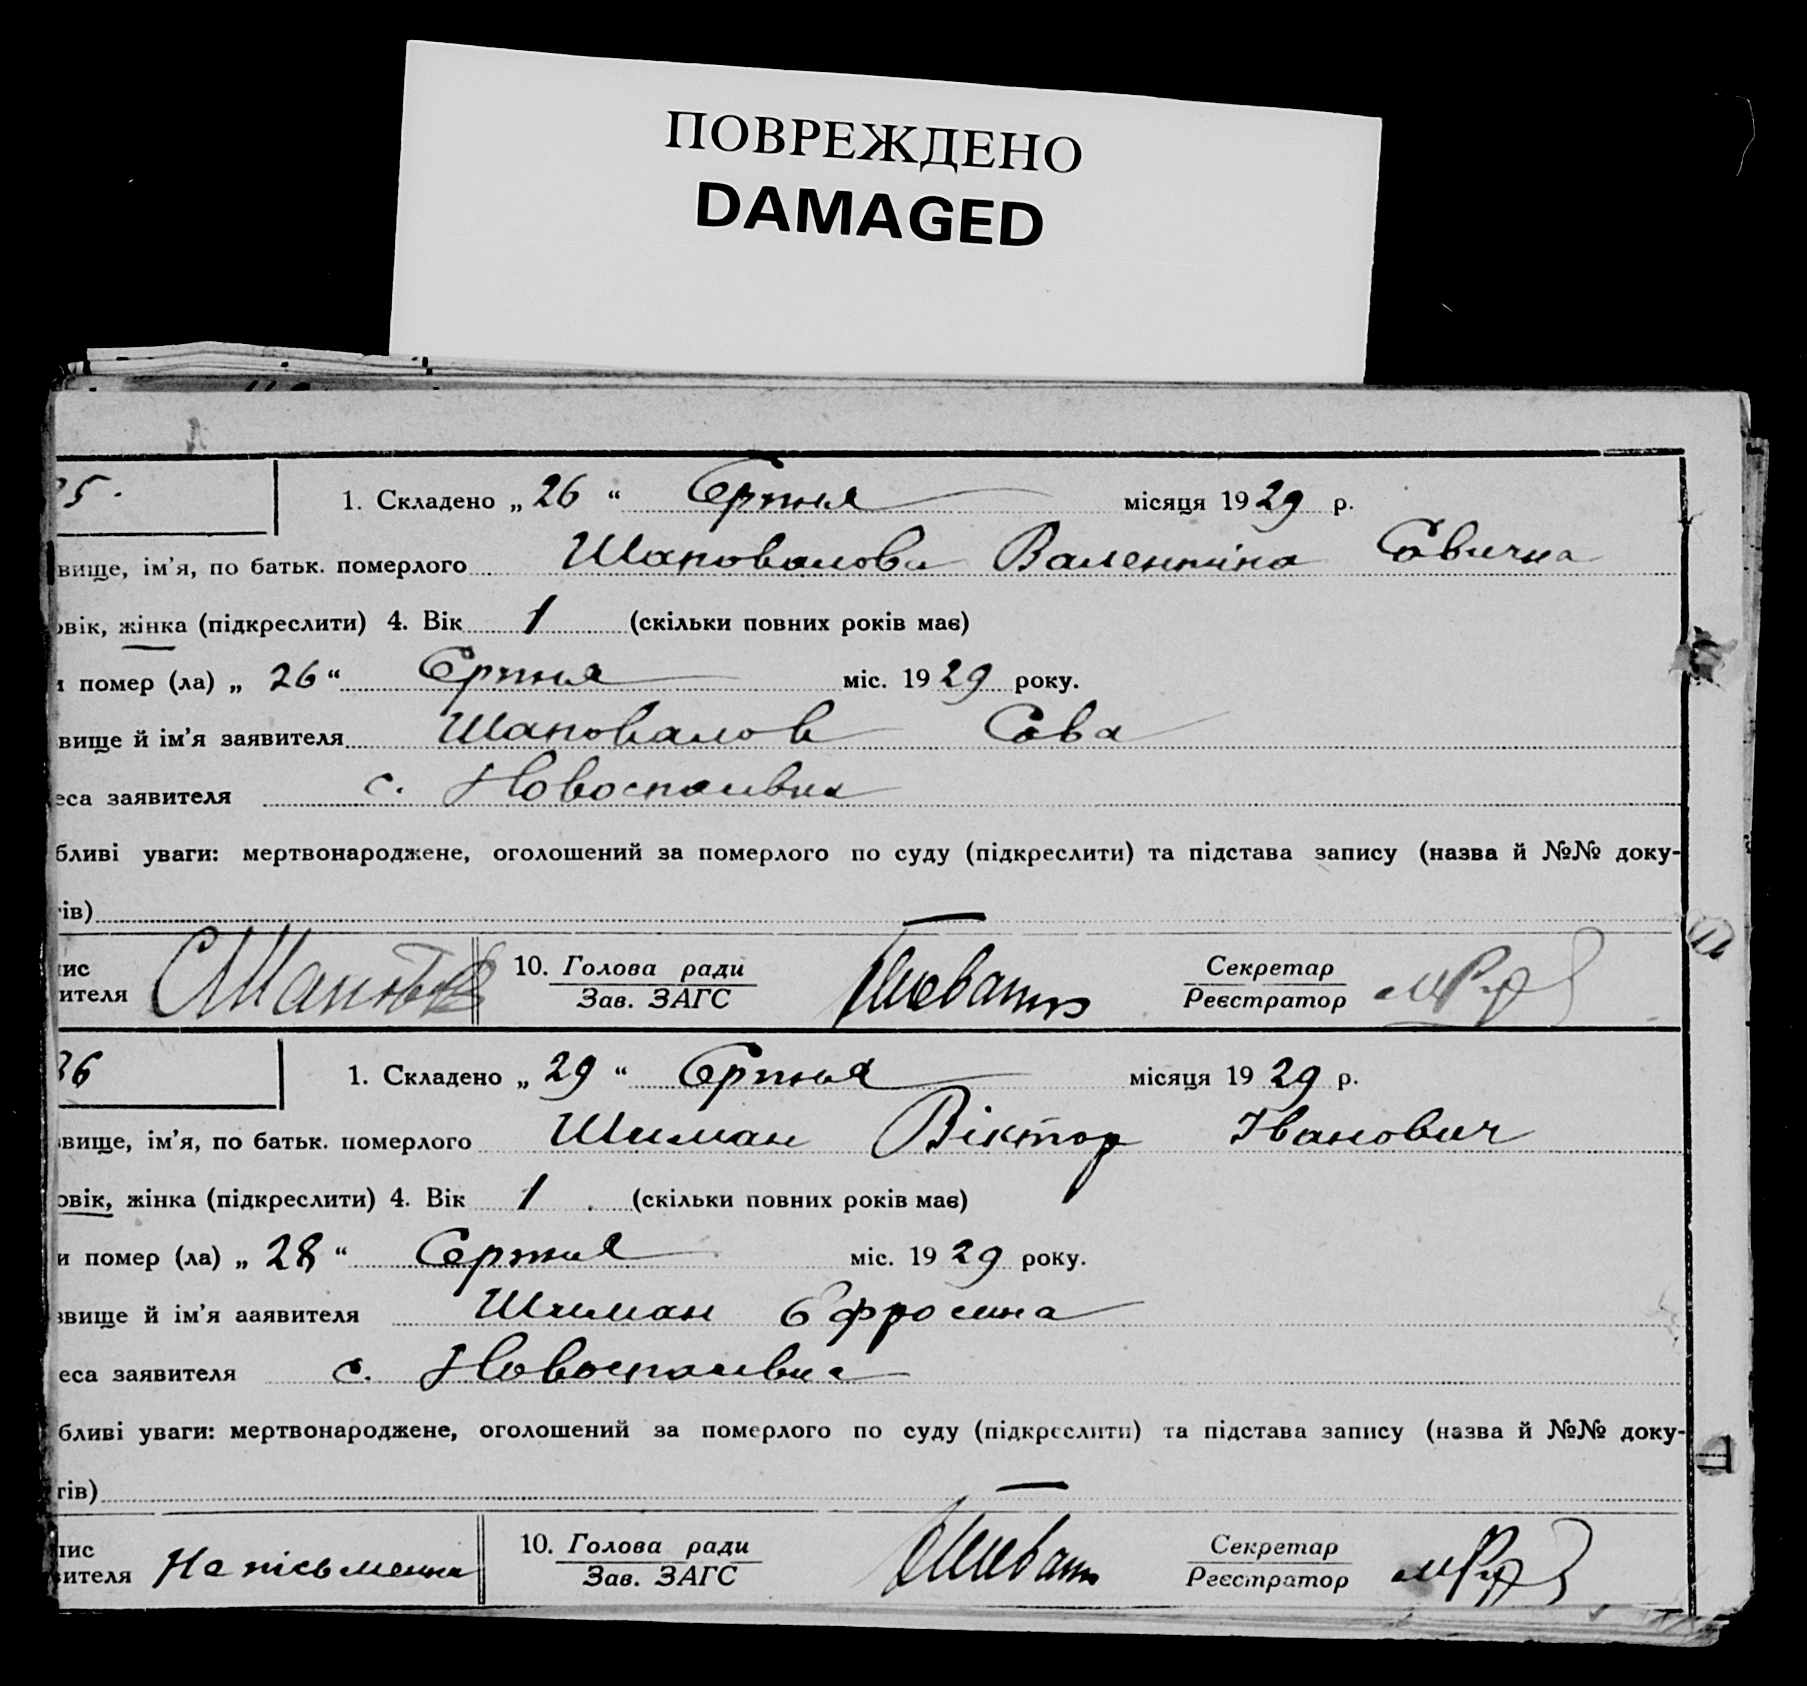 ПОВРЕЖДЕНО
DAMAGED
35.
1. Складено „ 26 “ Серпня місяця 1929 р.
вище, ім’я, по батьк. померлого Шаповалова Валентіна Савична
овік, жінка (підкреслити) 4. Вік 1 (скільки повних років має)
и помер (ла) „ 26 “ Серпня міс. 1929 року.
вище й ім’я заявителя Шаповалов Сава
еса заявителя с. Новоспасівка
бливі уваги: мертвонароджене, оголошений за померлого по суду (підкреслити) та підстава запису (назва й №№ доку-
тів)
пис
вителя
10. Голова ради
Зав. ЗАГС
Секретар
Реєстратор
36
1. Складено „ 29 “ Серпня місяця 1929 р.
звище, ім’я, по батьк. померлого Шиман Віктор Іванович
овік, жінка (підкреслити) 4. Вік 1 (скільки повних років має)
и помер (ла) „ 28 “ Серпня міс. 1929 року.
звище й ім’я ааявителя Шиман Єфросина
еса заявителя с. Новоспасівка
бливі уваги: мертвонароджене, оголошений за померлого по суду (підкреслити) та підстава запису (назва й №№ доку-
тів)
пис
вителя Не письменна
10. Голова ради
Зав. ЗАГС
Секретар
Реєстратор